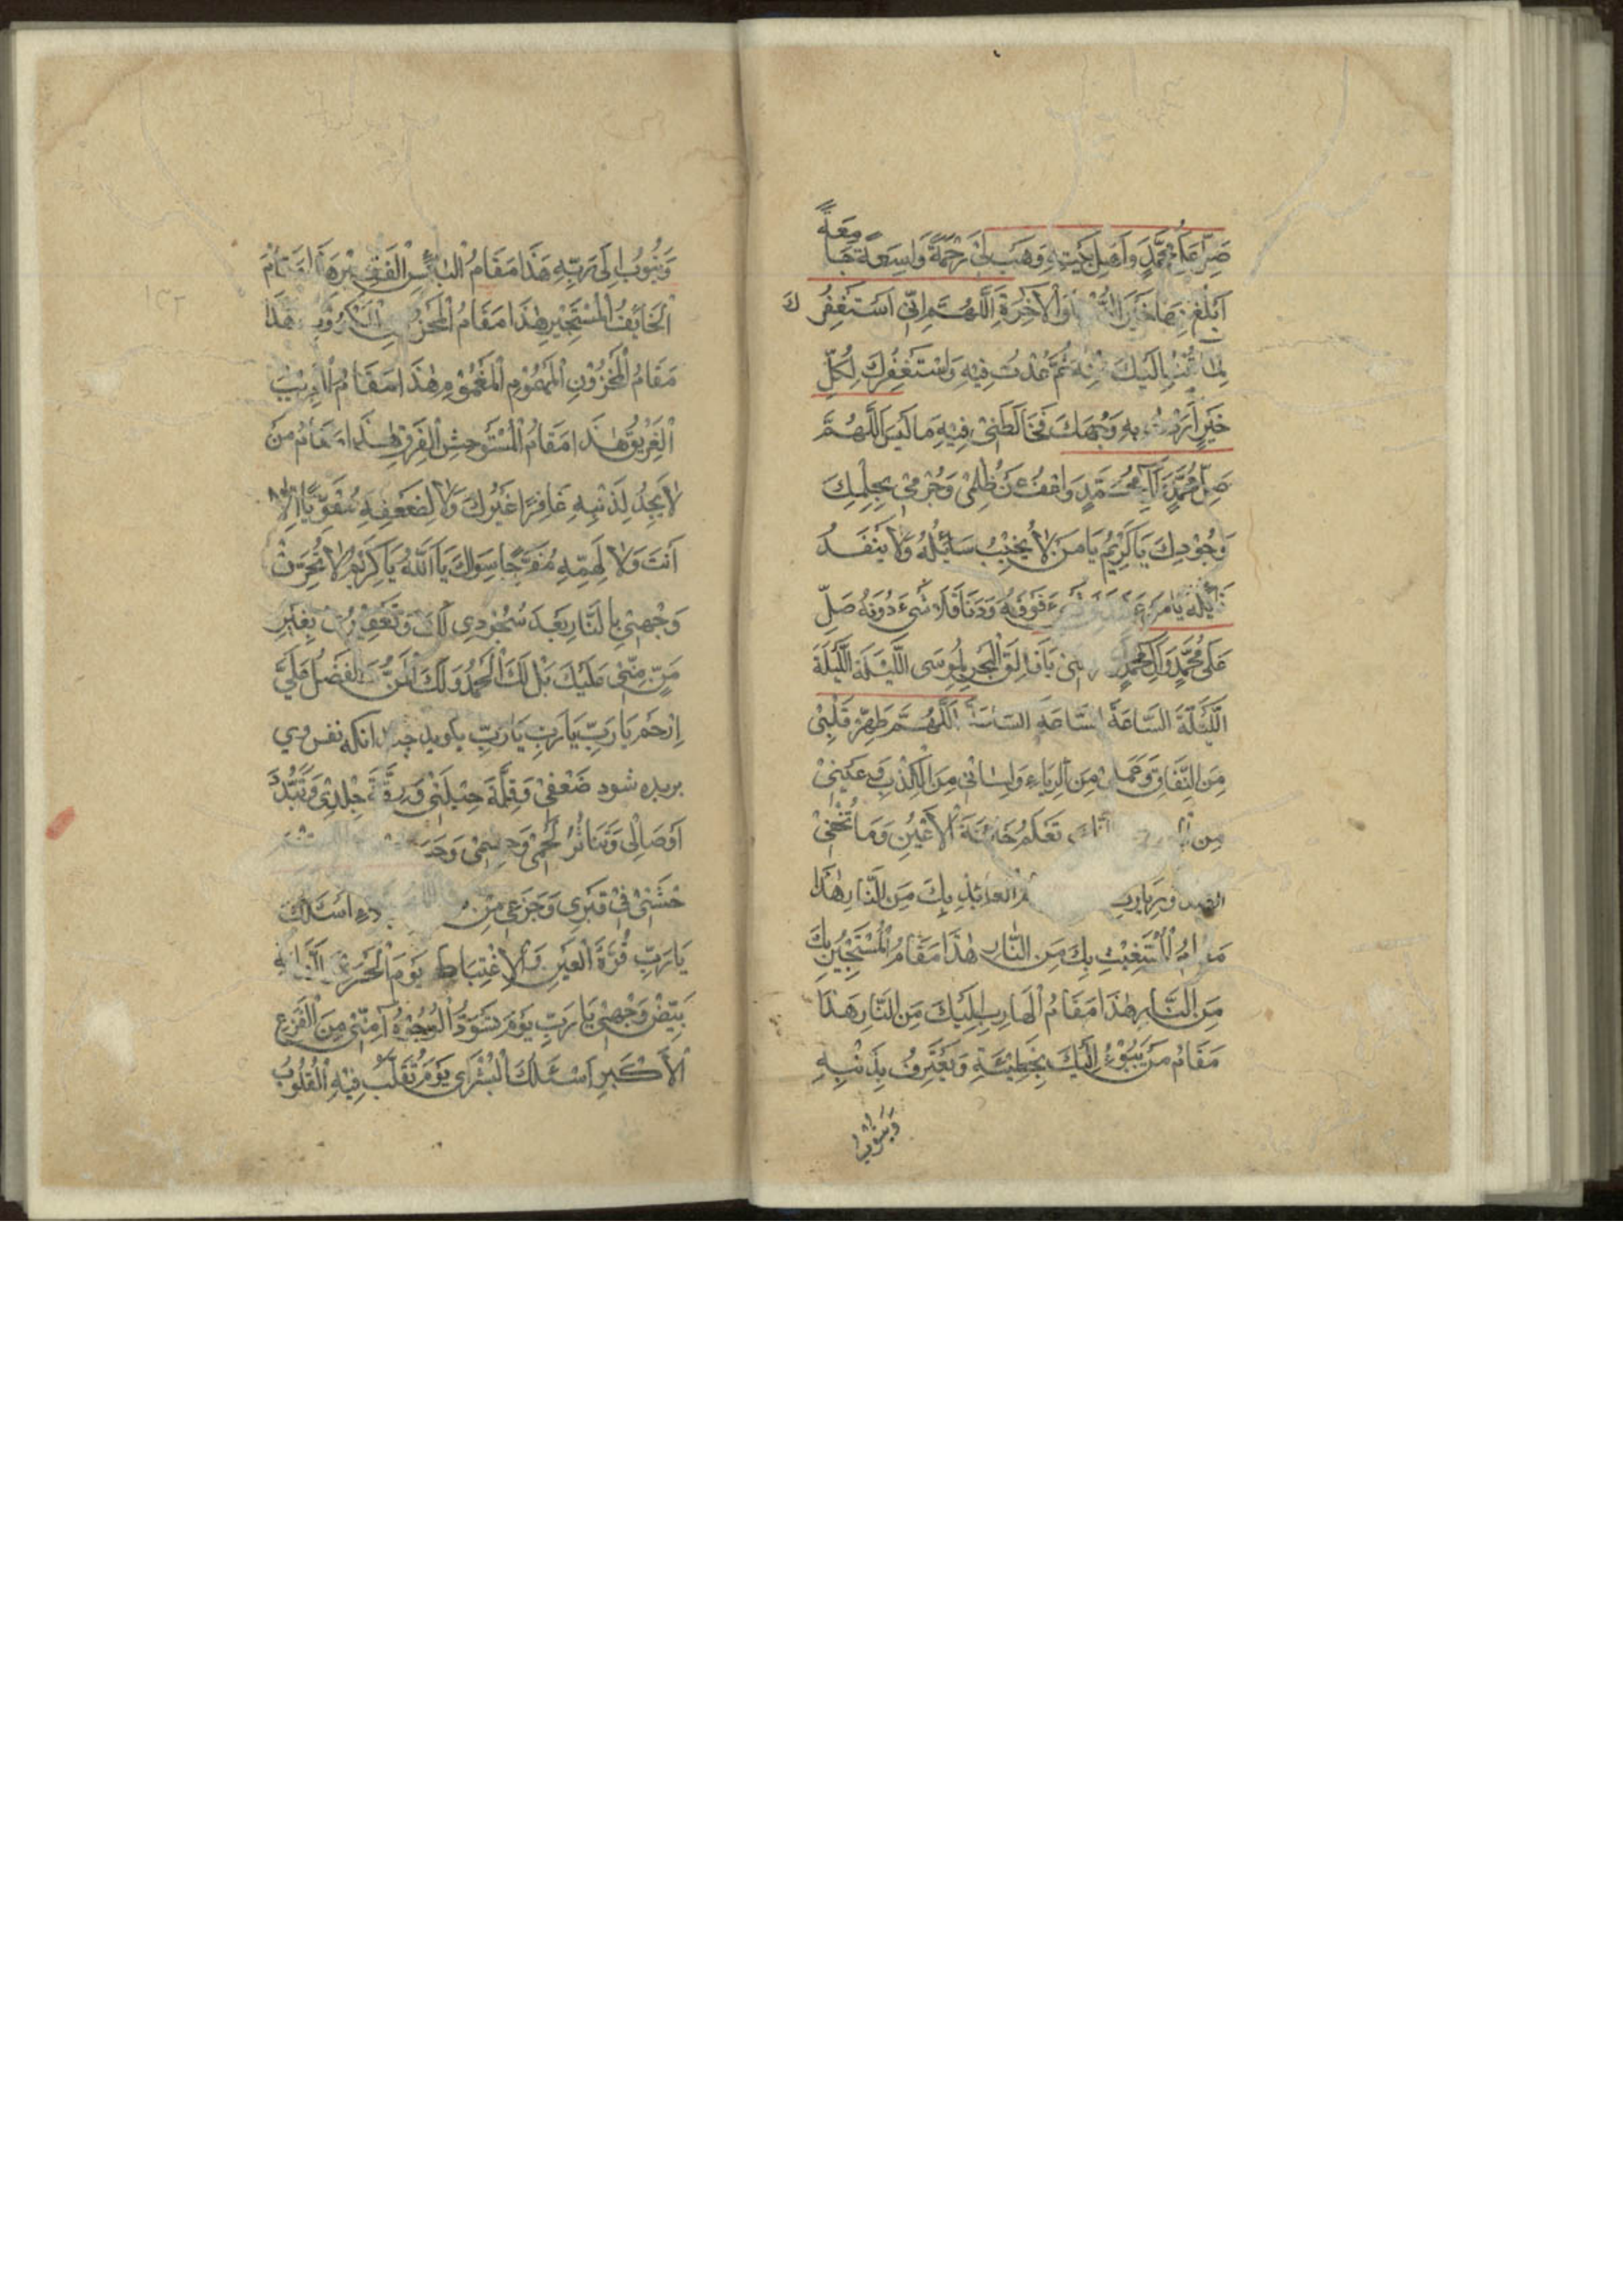 صَلِّ عَلٰى مُحَمَّدٍ وَاَهْلِ بَيْتِهِ وَهَبْ لِى رَحْمَةً وَاسِعَةً جَامِعَةً
اَبْلُغُ بِهَا خَيْرَ الدُّنْيَا وَالْاٰخِرَةِ اَللّٰهُمَّ اِنّى اَسْتَغْفِرُكَ
لِمَا تُبْتُ اِلَيْكَ مِنْهُ ثُمَّ عُدْتُ فِيهِ وَاَسْتَغْفِرُكَ لِكُلِّ
خَيْرٍ اَرَدْتُ بِهِ وَجْهَكَ فَخَالَطَنِىْ فِيْهِ مَا لَيْسَ اَللّٰهُمَّ
صَلِّ مُحَمَّدٍ مُحَمَّدٍ وَاعْفُ عَنْ ظُلْمِىْ وَجُرْمِىْ بِحِلْمِكَ
وَجُوْدِكَ يَا كَرِيْمُ يَا مَنْ لَا يُخَيِّبُ سَائِلُهُ وَلَا يَنْفَدُ
نَائِلُهُ يَا مَنْ فَوْقَهُ وَدَنَا فَلَا شَىْءَ دُوْنَهُ صَلِّ
عَلٰى مُحَمَّدٍ وَاٰلِ مُحَمَّدٍ يَا فَالِقَ الْبَحْرِ لِمُوسَى اللَّيْلَةَ اللَّيْلَةَ
اللَّيْلَةَ السَّاعَةَ السَّاعَةَ السَّاعَةَ اَللّٰهُمَّ طَهِّرْ قَلْبِىْ
مِنَ النِّفَاقِ وَعَمَلِىْ مِنَ الرِّيَاءِ وَلِسَانِى مِنَ الْكَذِبِ وَعَيْنِىْ
مِنَ تَعْلَمُ خَائِنَةَ الْاَعْيُنِ وَمَا تُخْفِىْ
الصدور يارب الْعَائِذِ بِكَ مِنَ النَّارِ هٰذَا
مَقَامُ الْمُسْتَغِيْثِ بِكَ مِنَ النَّارِ هٰذَا مَقَامُ الْمُسْتَجِيْرِ بِكَ
مِنَ النَّارِ هٰذَا مَقَامُ الْهَارِبِ اِلَيْكَ مِنَ النَّارِ هٰذَا
مَقَامُ مَنْ يَبُوْءُ اِلَيْكَ بِخَطِيْئَتِهِ وَيَعْتَرِفُ بِذَنْبِهِ
وَيَتُوْبُ
وَيَتُوْبُ اِلٰى رَبِّهِ هٰذَا مَقَامُ الْبَائِسِ الْفَقِيْرِ هٰذَا مَقَامُ
الْخَائِفِ الْمُسْتَجِيْرِ هٰذَا مَقَامُ الْمَحْزُوْنِ الْمَكْرُوْبِ هٰذَا
مَقَامُ الْمَحْزُوْنِ الْمَهْمُوْمِ الْمَغْمُوْمِ هٰذَا مَقَامُ الْغَرِيْبِ
الْغَرِيْقِ هٰذَا مَقَامُ الْمُسْتَوْحِشِ الْفَرِقِ هٰذَا مَقَامُ مَنْ
لَا يَجِدُ لِذَنْبِهِ غَافِرًا غَيْرَكَ وَلَا لِضَعْفِهِ مُقَوِّيًا اِلَّا
اَنْتَ وَلَا لِهَمِّهِ مُفَرِّجًا سِوَاكَ يَا اَللّٰهُ يَا كَرِيْمُ لَا تُحْرِقْ
وَجْهِىْ بِالنَّارِ بَعْدَ سُجُوْدِى لَكَ وَتَعْفِيْرِىْ بِغَيْرِ
مَنٍّ مِنِّىْ عَلَيْكَ بَلْ لَكَ الْحَمْدُ وَلَكَ الْمَنُّ الْفَضْلُ عَلَىَّ
اِرْحَمْ يَا رَبِّ يَا رَبِّ يَا رَبِّ بكويد چندانكه نفس وى
بريده شود ضَعْفِىْ وَقِلَّةَ حِيْلَتِىْ وَرِقَّةَ جِلْدِىْ وَتَبَدُّدَ
اَوْصَالِى وَتَنَاثُرَ لَحْمِىْ وَجِسْمِىْ وَجَسَدِى
وَحْشَتِىْ فِىْ قَبْرِى وَجَزَعِى مِنْ اَسْئَلُكَ
يَا رَبِّ قُرَّةَ الْعَيْنِ وَالْاِغْتِبَاطَ يَوْمَ الْحَسْرَةِ
بَيِّضْ وَجْهِىْ يَا رَبِّ يَوْمَ تَسْوَدُّ الْوُجُوْهُ اٰمِنِّىْ مِنَ الْفَزَعِ
الْاَكْبَرِ اَسْئَلُكَ الْبُشْرٰى يَوْمَ تُقَلَّبُ فِيْهِ الْقُلُوْبُ